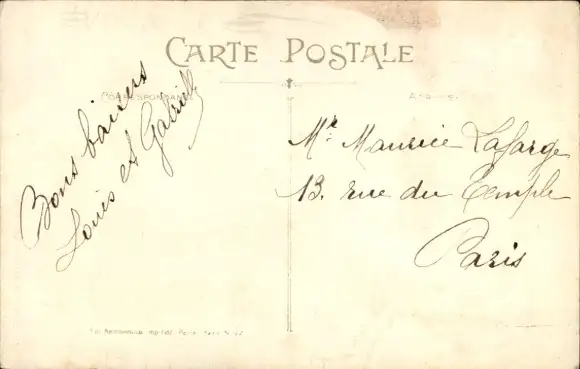 CARTE POSTALE
CORRESPONDANCE
Bons baisers
Louis et Gabriel
Mr. Maurice Lafarge
13. rue du Temple
Paris